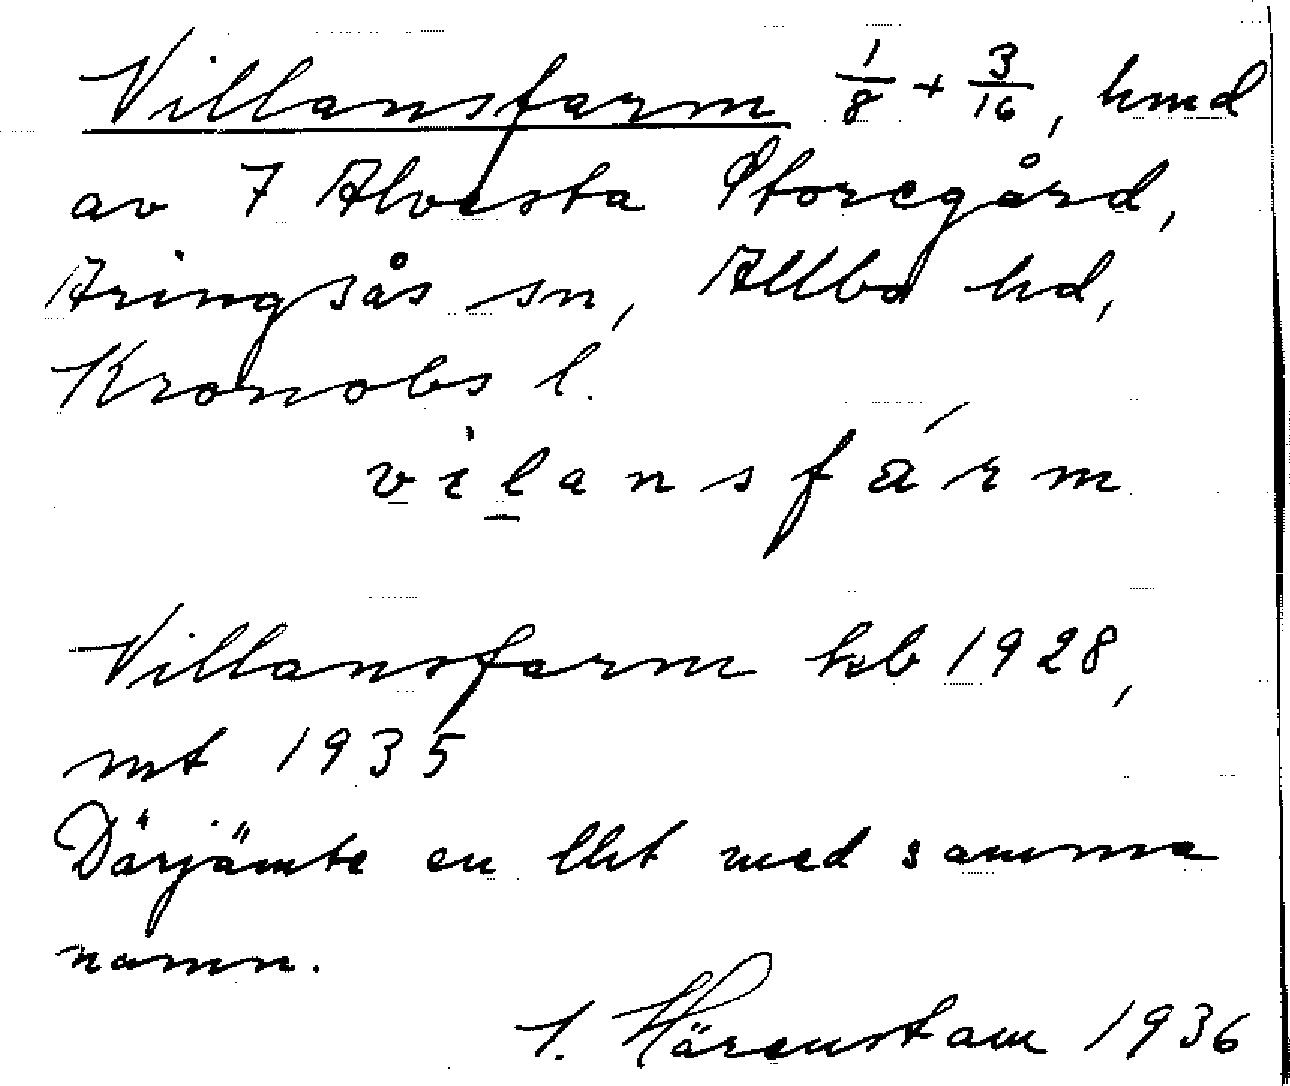 Villansfarm 1/8 + 3/16, hmd
av 7 Alvesta Storegård,
Aringsås sn, Allbo hd,
Kronobs l.
vilansfárm
Villansfarm hb 1928,
mt 1935
Därjämte en lht med samma
namn.
Härenstam 1936